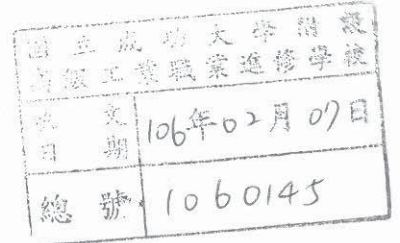 國立成功大學附設
高級工業職業進修學校
收文日期 106年02月07日
總號 1060145